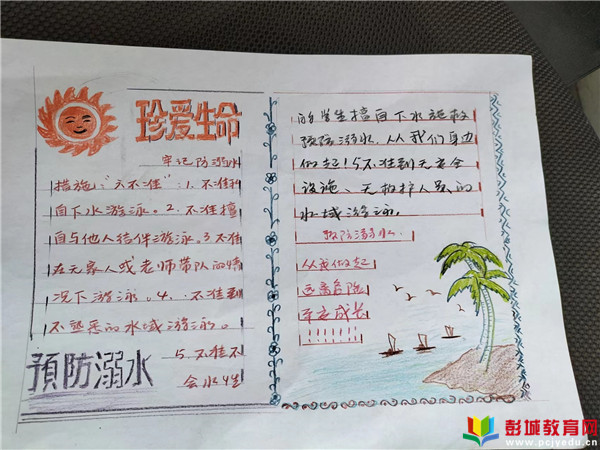 珍爱生命
牢记防溺水
措施:"六不准":1.不准私
自下水游泳。2.不准擅
自与他人结伴游泳。3不准
在无家人或老师带队的情
况下游泳。4.不准到
不熟悉的水域游泳。
5.不准不
会水学生
預防溺水
的学生擅自下水施救
预防溺水,从我们身边
做起!5不准到无安全
设施、无救护人员的
水域游泳。
预防溺水
从我做起
远离危险
平安成长
!!!!!!!
彭城教育网
www.pcjyedu.cn